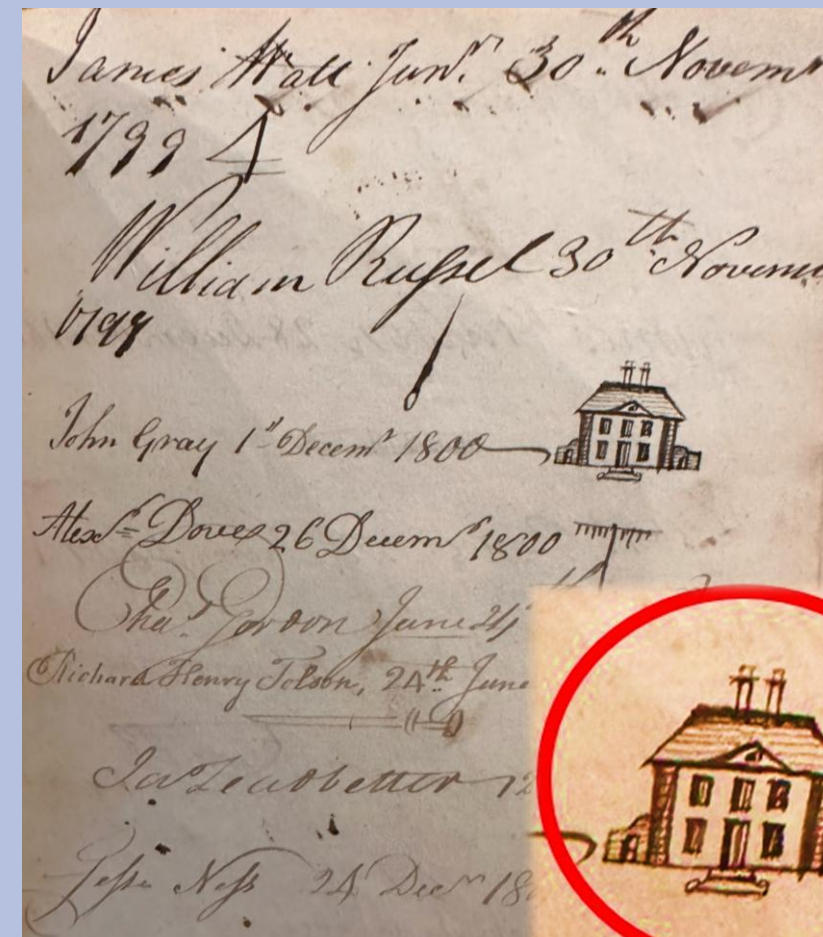 James Wall Junr. 30th Novemr
1799
William Russel 30th Novem
1799
John Gray 1st Decemr 1800
Alexr Dove 26 Decemr 1800
Chas. Gordon June 24
Richard Henry Tolson, 24th June
Ja Leadbetter 12
Jesse Ness 24 Decr 18